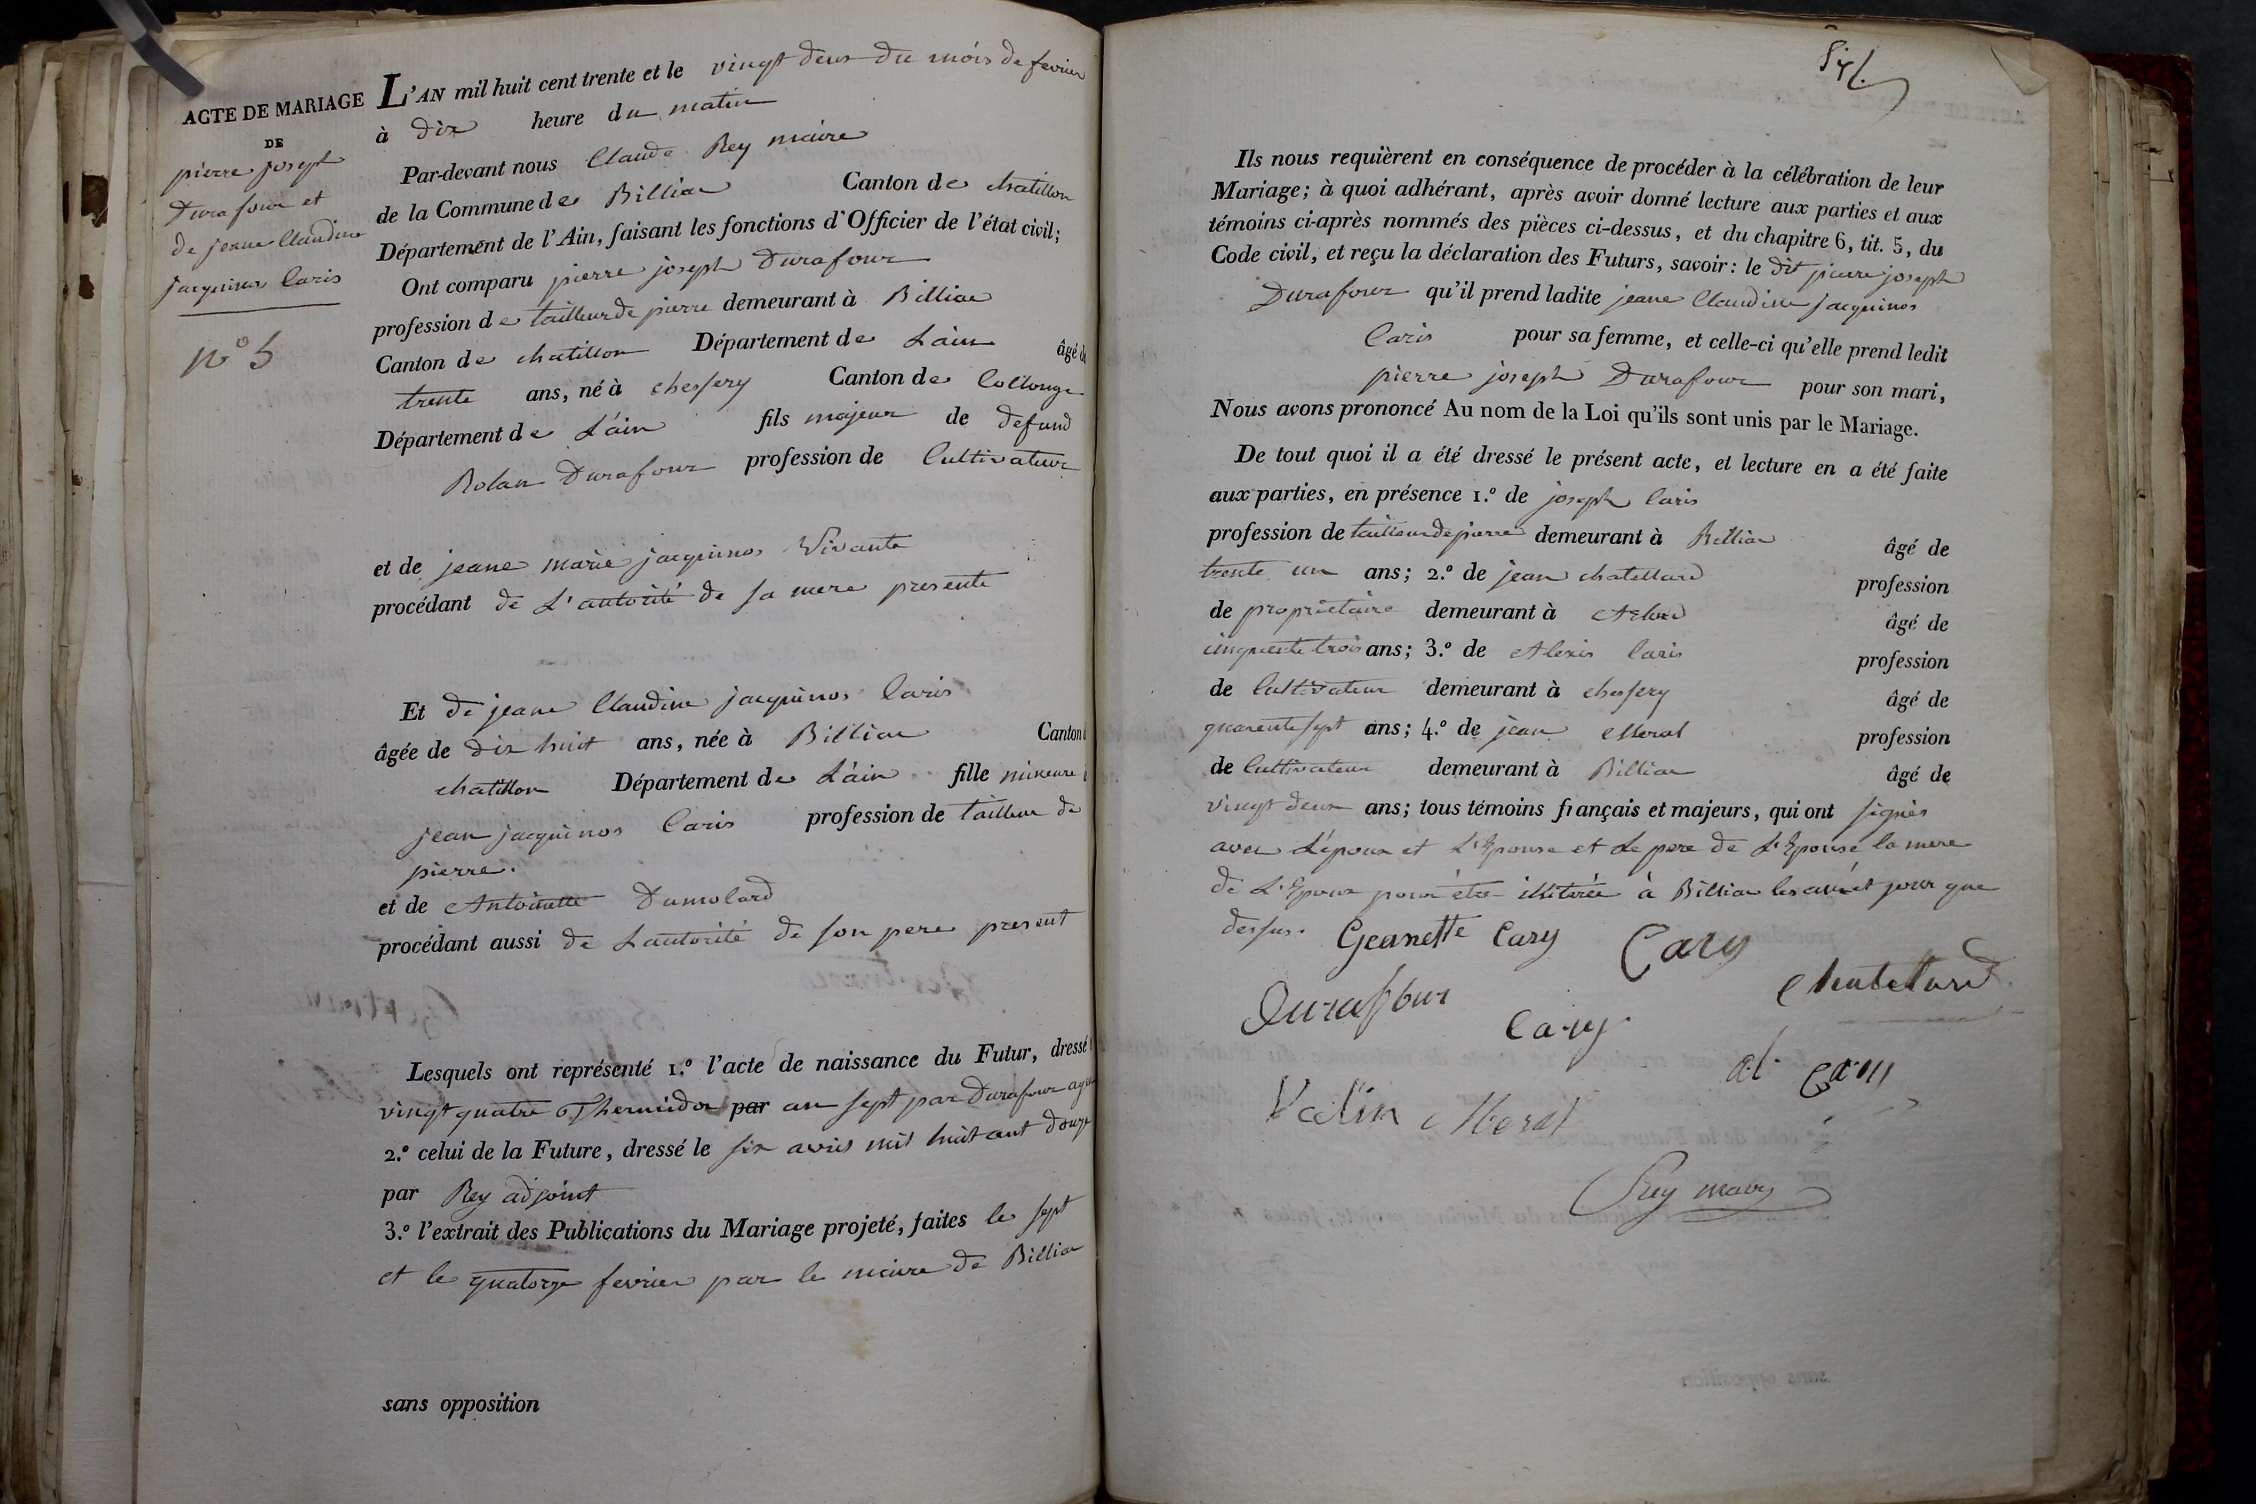 ACTE DE MARIAGE
DE
pierre joseph
Durafour et
de jeane Claudine
jacquinos Caris
n° 5
L'AN mil huit cent trente et le vingt deux du mois de fevrier
à dix heure du matin
Par-devant nous Claude Rey maire
de la Commune de Billiac Canton de chatillon
Département de l'Ain, faisant les fonctions d'Officier de l'état civil;
Ont comparu pierre joseph Durafour
profession de tailleur de pierre demeurant à Billiac
Canton de chatillon Département de L'ain âgé de
trente ans, né à chesery Canton de Collonge
Département de L'ain fils majeur de defund
Rolan Durafour profession de Cultivateur
et de jeane marie jacquinos Vivante
procédant de L'autorité de sa mere presente
Et de jeane Claudine jacquinos Caris
âgée de dix huit ans, née à Billiac Canton
chatillon Département de L'ain fille mineure
jean jacquinos Caris profession de tailleur de
pierre.
et de Antoinette Dumolard
procédant aussi de L'autorité de son pere present
Lesquels ont représenté 1.° l'acte de naissance du Futur, dressé
vingt quatre Thermidor par an sept par Durafour
2.° celui de la Future, dressé le six avril mil huit cent douze
par Rey adjoint
3.° l'extrait des Publications du Mariage projeté, faites le sept
et le quatorze fevrier par le maire de Billiac
sans opposition
Ils nous requièrent en conséquence de procéder à la célébration de leur
Mariage; à quoi adhérant, après avoir donné lecture aux parties et aux
témoins ci-après nommés des pièces ci-dessus, et du chapitre 6, tit. 5, du
Code civil, et reçu la déclaration des Futurs, savoir: le dit pierre joseph
Durafour qu'il prend ladite jeane Claudine jacquinos
Caris pour sa femme, et celle-ci qu'elle prend ledit
pierre joseph Durafour pour son mari,
Nous avons prononcé Au nom de la Loi qu'ils sont unis par le Mariage.
De tout quoi il a été dressé le présent acte, et lecture en a été faite
aux parties, en présence 1.° de joseph Caris
profession de tailleur de pierre demeurant à Billiac âgé de
trente un ans; 2.° de jean chatellard profession
de proprietaire demeurant à âgé de
cinquente trois ans; 3.° de Alexis Caris profession
de Cultivateur demeurant à chesery âgé de
quarente sept ans; 4.° de jean Meral profession
de Cultivateur demeurant à Billiac âgé de
vingt deux ans; tous témoins français et majeurs, qui ont signés
avec L'époux et L'Epouse et Le pere de L'Epouse la mere
de L'Epoux pour être illiterée à Billiac les an et jour que
dessus.
Geanette Cary Cary
Duraffour Cary Chatellard
al Cary
Valin Meral
Rey maire